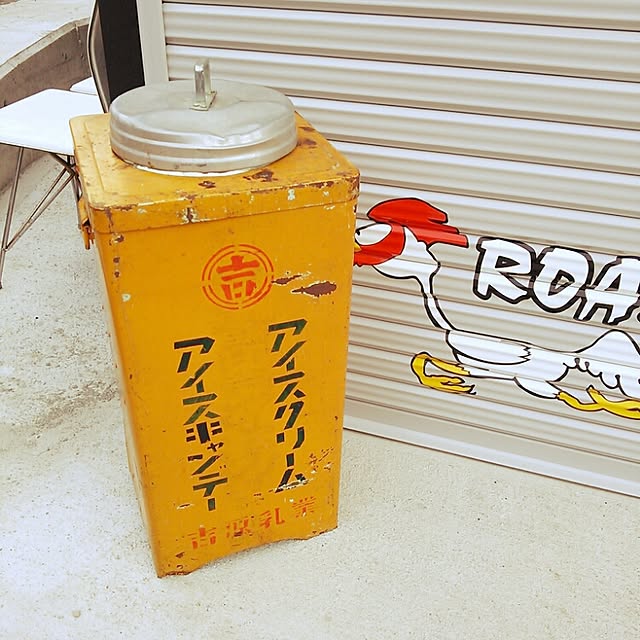 吉
アイスクリーム
アイスキャンデー
吉原乳業
ROA